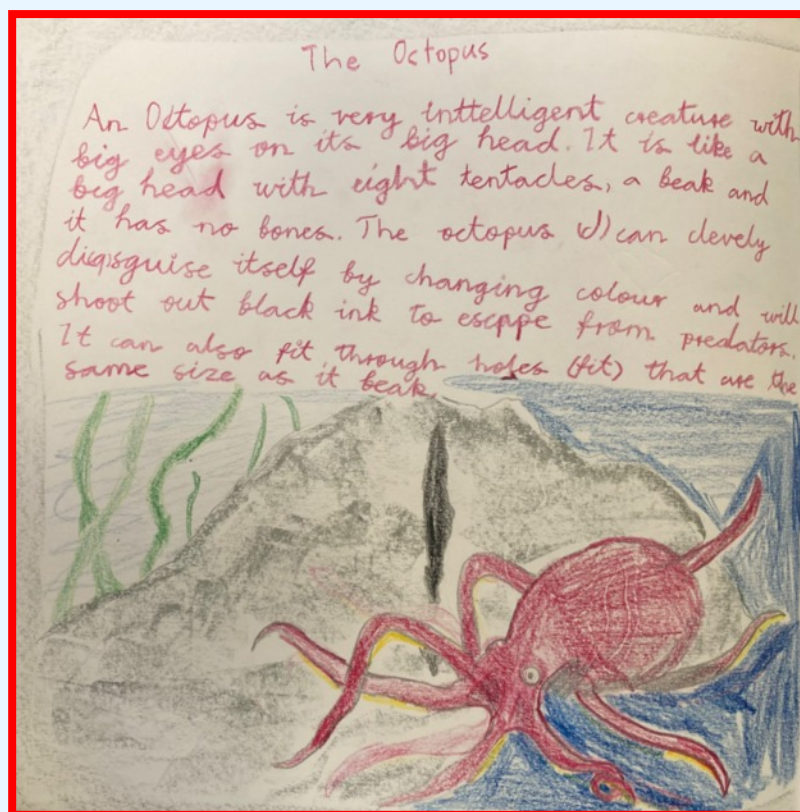 The Octopus
An Octopus is very inttelligent creature with
big eyes on its big head. It is like a
big head with eight tentacles, a beak and
it has no bones. The octopus (d) can clevely
disguise itself by changing colour and will
shoot out black ink to escppe from predators.
It can also fit through holes (fit) that are the
same size as it beak.